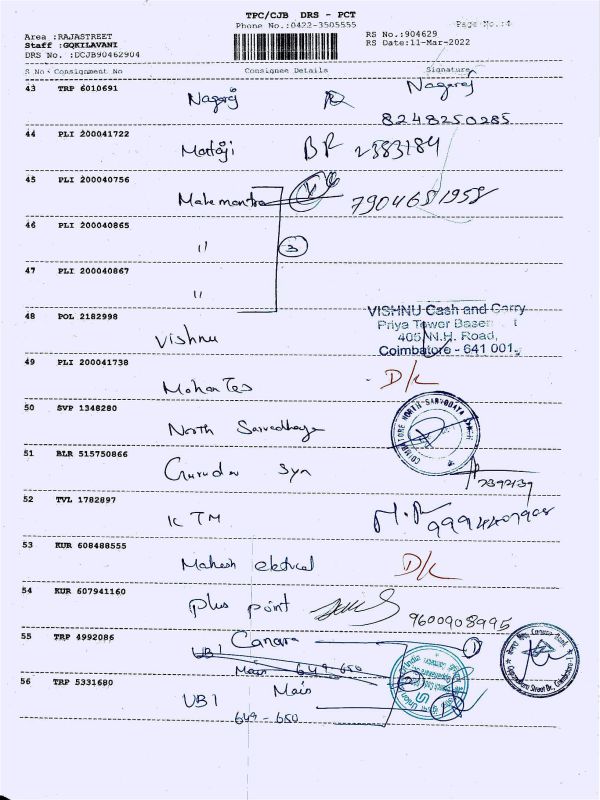 TPC/CJB DRS - PCT
Phone No.:0422-3505555
Page No.:4
Area : RAJASTREET
Staff : GQKILAVANI
DRS No. :DCJB90462904
RS No.:904629
RS Date:11-Mar-2022
S No Consignment No Consignee Details Signature
43 TRP 6010691
Nagaraj Nagaraj
8248250285
44 PLI 200041722
Mataji
45 PLI 200040756
7904681958
46 PLI 200040865
" 3
47 PLI 200040867
"
48 POL 2182998
Vishnu
VISHNU Cash and Carry
Priya Tower
405, N.H. Road,
Coimbatore - 641 001.
49 PLI 200041738
D/L
50 SVP 1348280
North
COIMBATORE NORTH SARVODAYA
51 BLR 515750866
Gurudev Syn
52 TVL 1782897
KTM
53 KUR 608488555
Mahesh electrical D/L
54 KUR 607941160
plus point
9600908995
55 TRP 4992086
UBI Canara 1
Main 649-650
Canara Bank
56 TRP 5331680
UBI Main
649 - 650